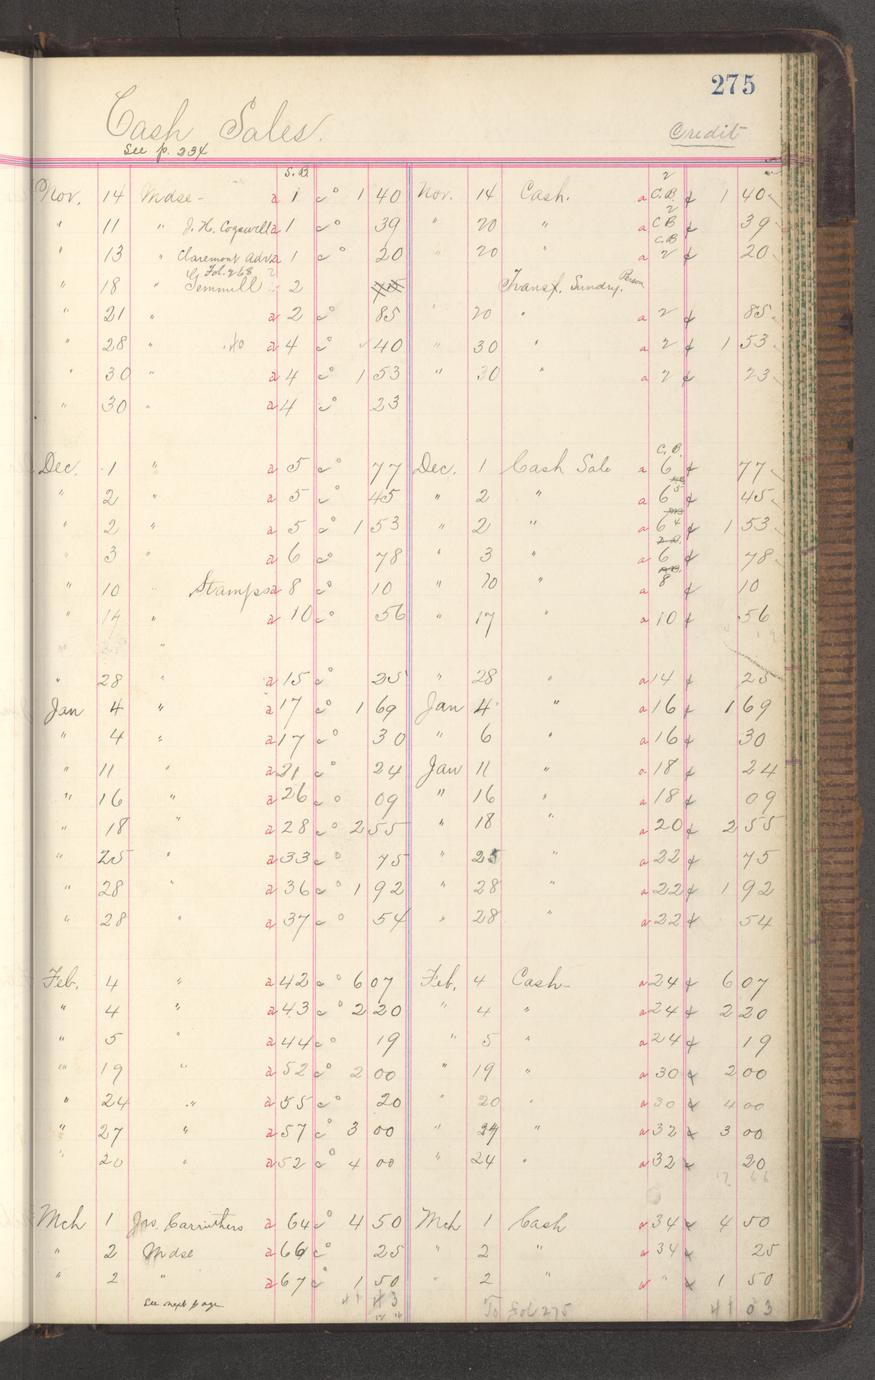 275
Cash Sales.
See p. 234
Credit
S.B. 2
Nov. 14 Mdse - a 1 1 40 Nov. 14 Cash. a C.B. ¢ 1 40
" 11 " J. H. Cogswell a 1 39 " 20 " a C B 2 ¢ 39
" 13 " Claremont Adv. a 1 20 " 20 " a C.B. 2 ¢ 20
Fol. 268
" 18 " Gemmill 2 Transf. Sundry Person
" 21 " a 2 85 20 " a 2 ¢ 85
" 28 " a 4 40 " 30 " a 2 ¢ 1 53
" 30 " a 4 1 53 " 30 " a 2 ¢ 23
" 30 " a 4 23
C.B.
Dec. 1 " a 5 77 Dec. 1 Cash Sale a 6 ¢ 77
" 2 " a 5 45 " 2 " a 6 ¢ 45
" 2 " a 5 1 53 " 2 " a 6 ¢ 1 53
" 3 " a 6 78 " 3 " a 6 ¢ 78
" 10 Stamps a 8 10 " 10 " a 8 10
" 14 " a 10 56 " 17 " a 10 ¢ 56
"
" 28 " a 15 25 " 28 " a 14 ¢ 25
Jan 4 " a 17 1 69 Jan 4 " a 16 ¢ 1 69
" 4 " a 17 30 " 6 " a 16 ¢ 30
" 11 " a 21 24 Jan 11 " a 18 ¢ 24
" 16 " a 26 09 " 16 " a 18 ¢ 09
" 18 " a 28 2 55 " 18 " a 20 ¢ 2 55
" 25 " a 33 75 " 25 " a 22 ¢ 75
" 28 " a 36 1 92 " 28 " a 22 ¢ 1 92
" 28 " a 37 54 " 28 " a 22 ¢ 54
Feb. 4 " a 42 6 07 Feb. 4 Cash - a 24 ¢ 6 07
" 4 " a 43 2 20 " 4 " a 24 ¢ 2 20
" 5 " a 44 19 " 5 " a 24 ¢ 19
" 19 " a 52 2 00 " 19 " a 30 ¢ 2 00
" 24 " a 55 20 " 20 " a 30 ¢ 4 00
" 27 " a 57 3 00 " 27 " a 32 ¢ 3 00
" 20 " a 52 4 00 " 24 " a 32 ¢ 20
Mch 1 Jas. Carruthers a 64 4 50 Mch 1 Cash a 34 ¢ 4 50
" 2 Mdse a 66 25 " 2 " a 34 ¢ 25
" 2 " a 67 1 50 " 2 " a " ¢ 1 50
See next page To Fol 275 41 03